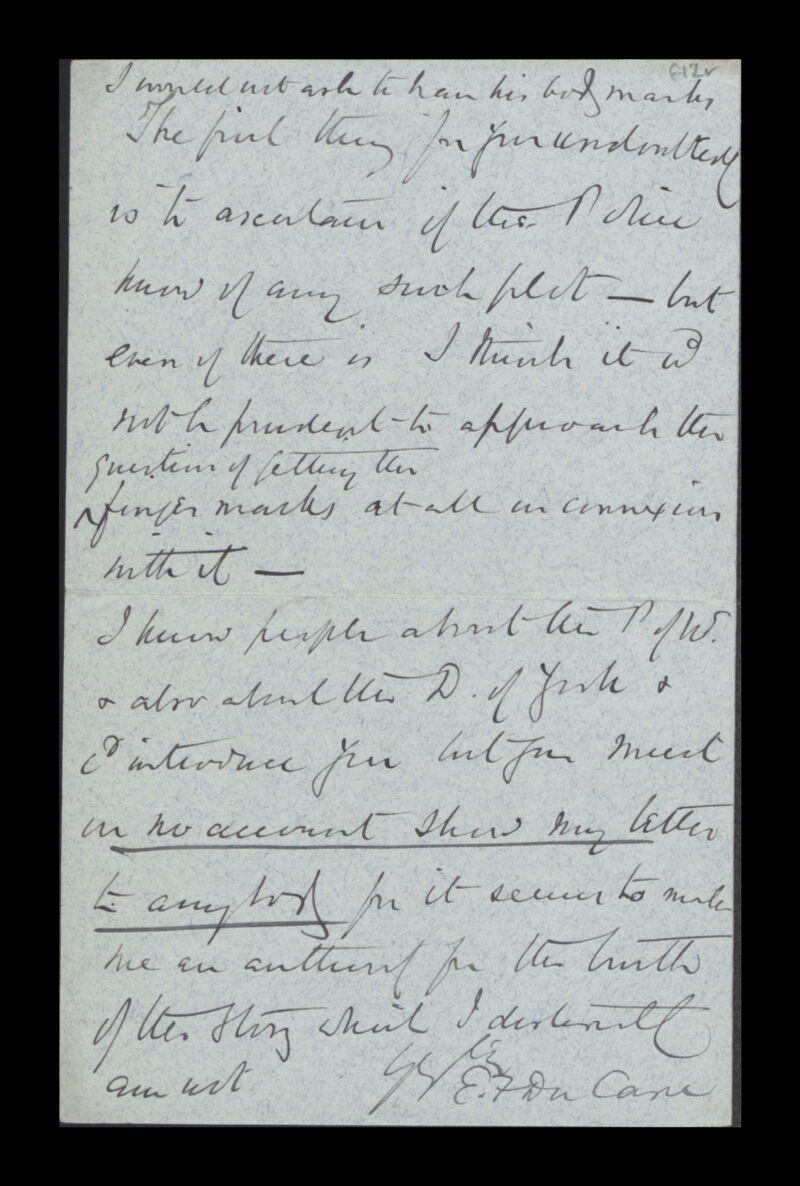 f12r
I would not ask to have his body marks
The first thing for you undoubtedly
is to ascertain if the Police
know of any such plot — but
even if there is I think it wd
not be prudent to approach the
question of getting the
finger marks at all in connexion
with it —
I know people about the P. of W.
& also about the D. of York &
cd introduce you but you must
on no account show my letter
to anybody for it seems to make
me an authority for the truth
of the story which I distinctly
am not
E. F Du Cane